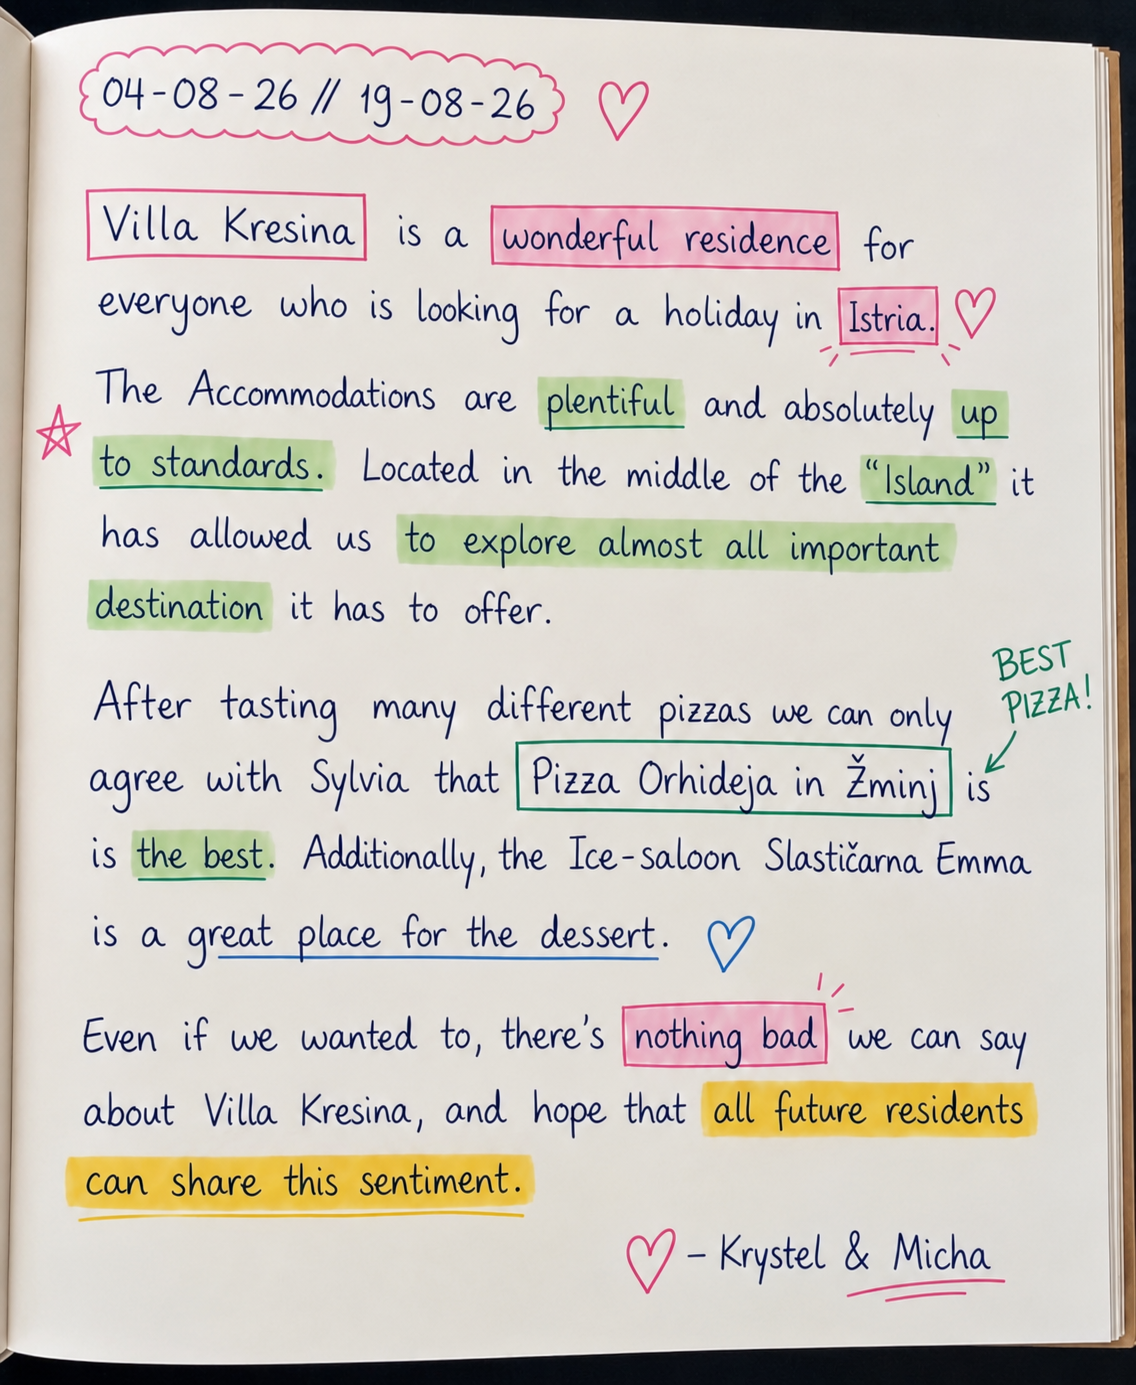 04-08-26 // 19-08-26
Villa Kresina is a wonderful residence for
everyone who is looking for a holiday in Istria.
The Accommodations are plentiful and absolutely up
to standards. Located in the middle of the "Island" it
has allowed us to explore almost all important
destination it has to offer.
BEST
PIZZA!
After tasting many different pizzas we can only
agree with Sylvia that Pizza Orhideja in Žminj is
is the best. Additionally, the Ice-saloon Slastičarna Emma
is a great place for the dessert.
Even if we wanted to, there's nothing bad we can say
about Villa Kresina, and hope that all future residents
can share this sentiment.
- Krystel & Micha